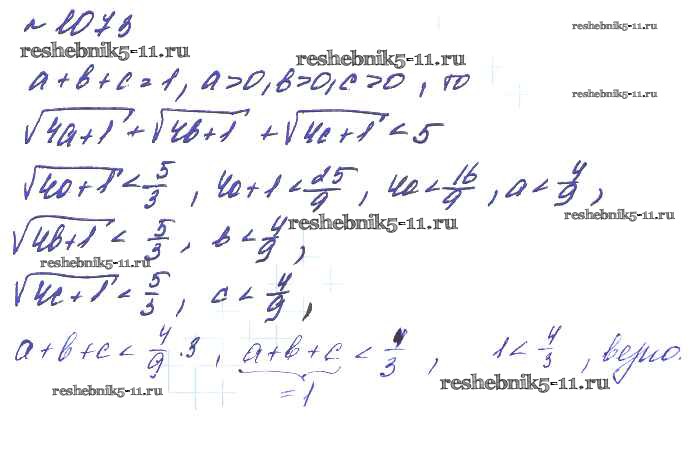 №1073
reshebnik5-11.ru
reshebnik5-11.ru reshebnik5-11.ru
a+b+c=1, a>0, b>0, c>0, то
reshebnik5-11.ru
√(4a+1) + √(4b+1) + √(4c+1) < 5
√(4a+1) < 5/3, 4a+1 < 25/9, 4a < 16/9, a < 4/9,
reshebnik5-11.ru reshebnik5-11.ru
√(4b+1) < 5/3, b < 4/9,
reshebnik5-11.ru
√(4c+1) < 5/3, c < 4/9,
a+b+c < 4/9 · 3, a+b+c < 4/3, 1 < 4/3, верно.
=1
reshebnik5-11.ru reshebnik5-11.ru